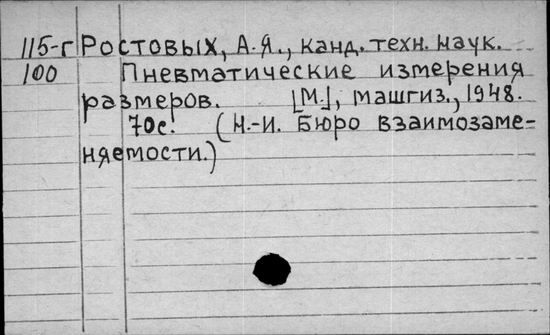 115-г Ростовых, А.Я., канд. техн. наук.
100 Пневматические измерения
размеров. [М.], машгиз., 1948.
70с. (Н.-и. Бюро взаимозаме=
няемости.)